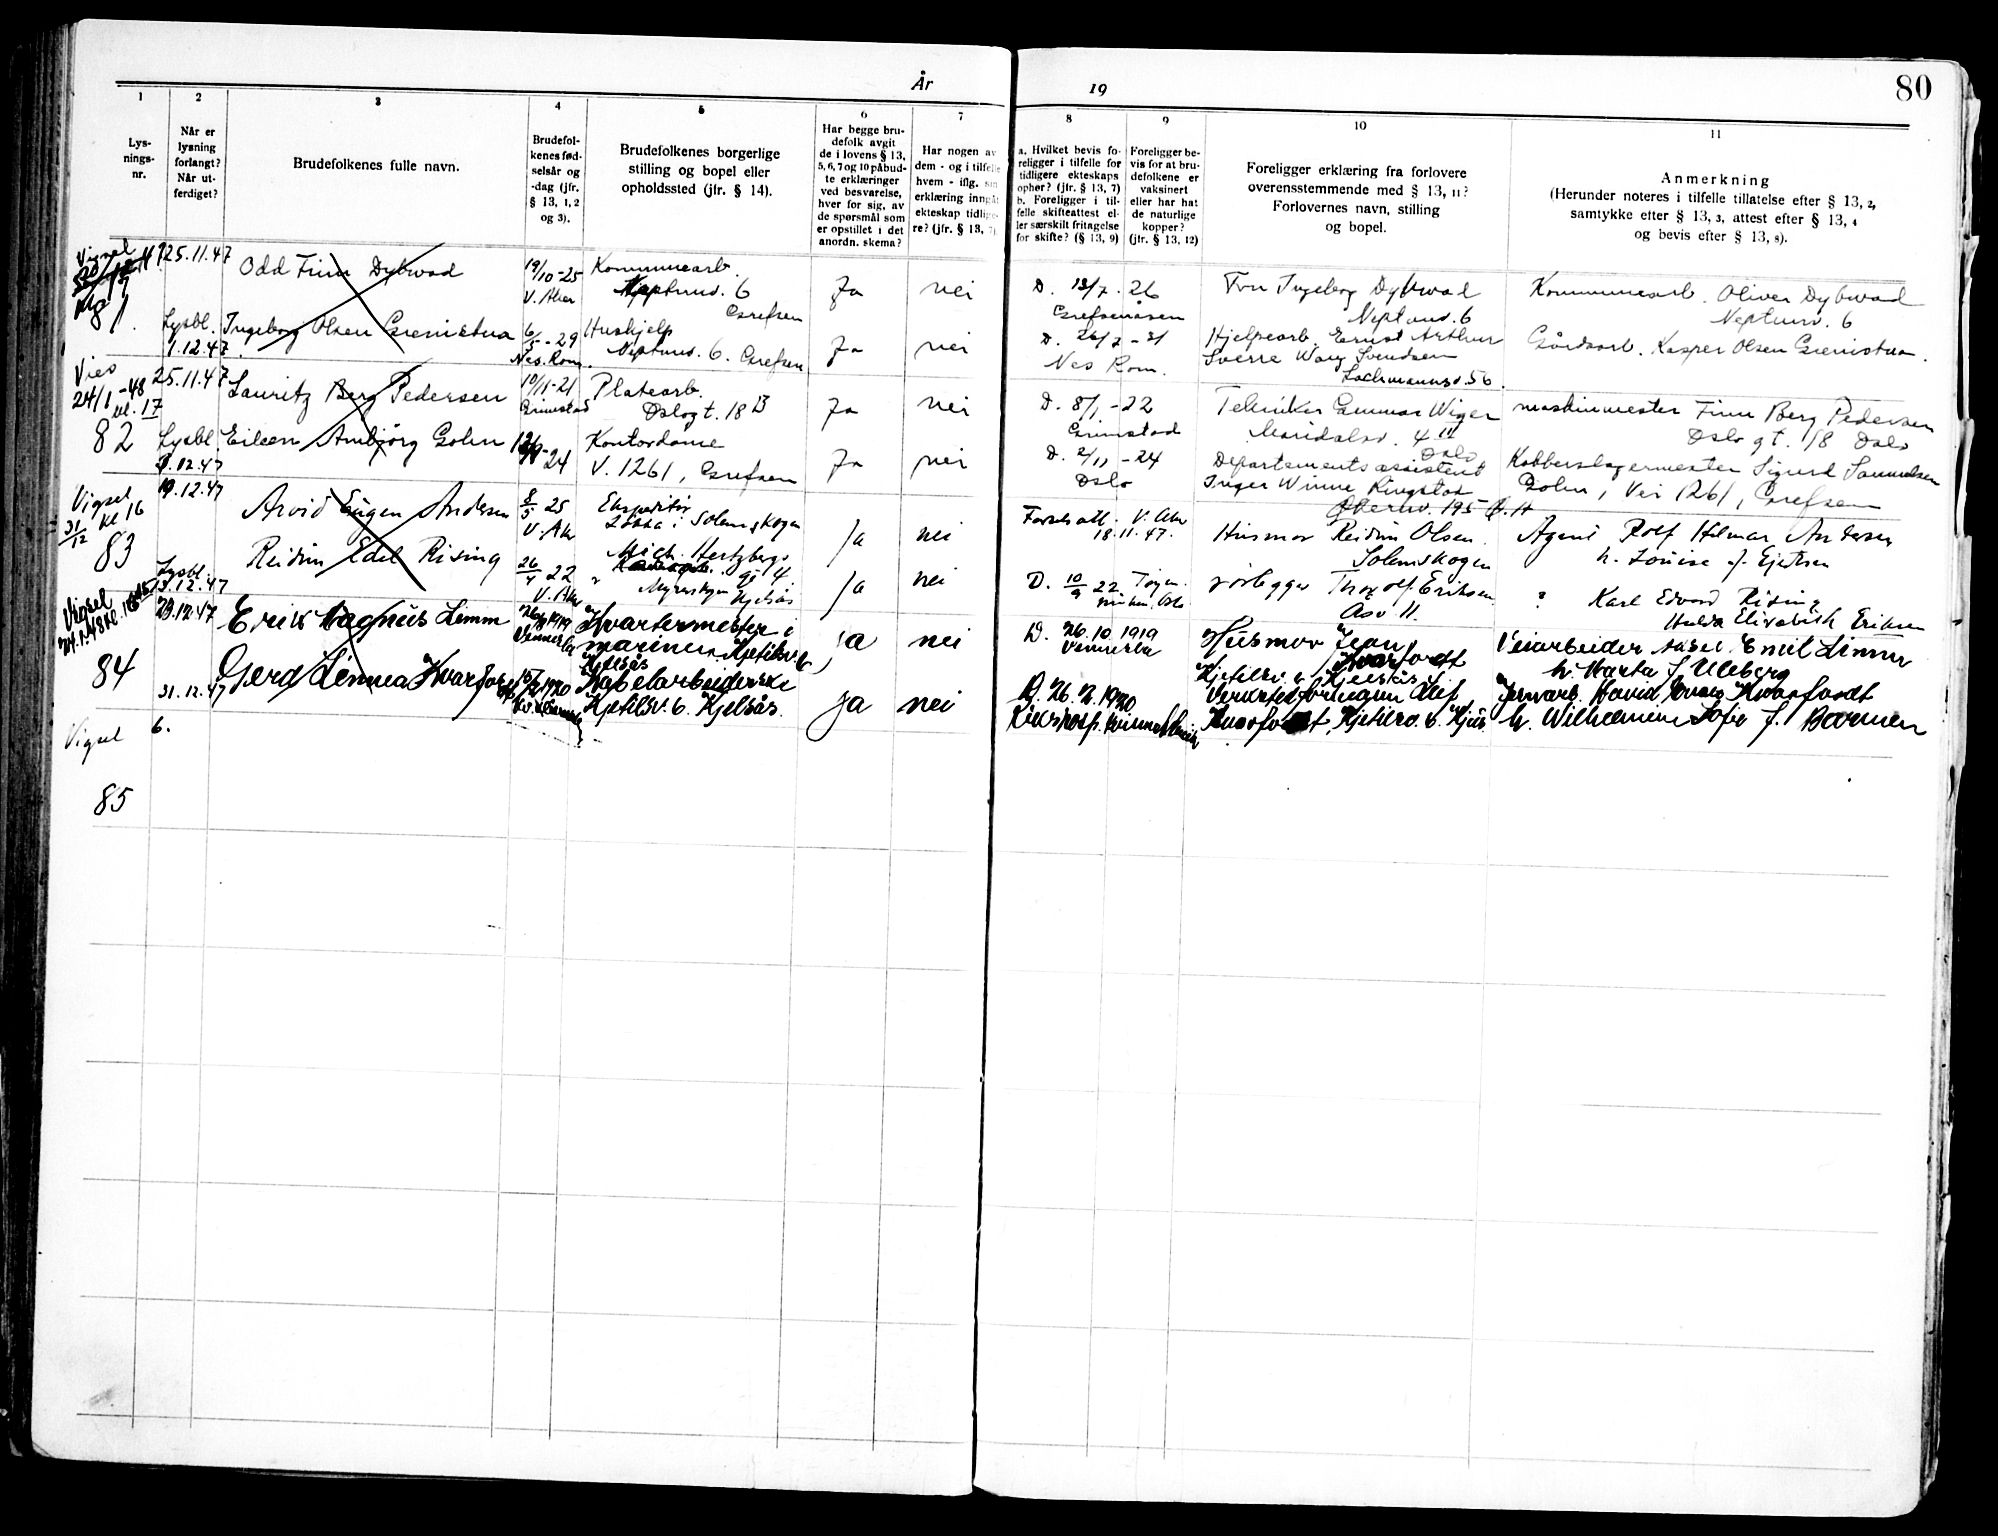 År 19
80
1 2 3 4 5 6 7 8 9 10 11
Lys-
nings-
nr.
Når er
lysning
forlangt?
Når ut-
ferdiget?
Brudefolkenes fulle navn.
Brudefol-
kenes fød-
selsår og
-dag (jfr.
§ 13, 1, 2
og 3).
Brudefolkenes borgerlige
stilling og bopel eller
opholdssted (jfr. § 14).
Har begge bru-
defolk avgit
de i lovens § 13,
5, 6, 7 og 10 påbud-
te erklæringer
ved besvarelse,
hver for sig, av
de spørsmål som
er opstillet i det
anordn. skema?
Har nogen av
dem - og i tilfelle
hvem - iflg. sin
erklæring inngåt
ekteskap tidlige-
re? (jfr. § 13, 7)
a. Hvilket bevis fo-
religger i tilfelle for
tidligere ekteskaps
ophør? (jfr. § 13, 7)
b. Foreligger i til-
felle skifteattest el-
ler særskilt fritagelse
for skifte? (§ 13, 9)
Foreligger be-
vis for at bru-
defolkene er
vaksinert
eller har hat
de naturlige
kopper?
(jfr. § 13, 12)
Foreligger erklæring fra forlovere
overensstemmende med § 13, 11?
Forlovernes navn, stilling
og bopel.
Anmerkning
(Herunder noteres i tilfelle tillatelse efter § 13, 2,
samtykke efter § 13, 3, attest efter § 13, 4
og bevis efter § 13, 8).
Vigsel
25.11.47
Odd Finn Dybwad
19/10-25
V. Aker
Kommunearb.
Neptunv. 6
Grefsen
Ja
nei
D. 13/7. 26
Grefsenåsen
Fru Ingeborg Dybwad
Neptunv. 6
Kommunearb. Oliver Dybwad
Neptunv. 6
Lysbl.
1.12.47
Ingeborg Olsen
6/5-29
Nes. Rom.
Hushjelp
Neptunv. 6. Grefsen
Ja
nei
Nes Rom.
Hjelpearb. Ernst Arthur
Sverre Wang Svendsen
Lachmannsv. 56.
Gårdsarb. Kasper Olsen
24/1-48
kl. 17
82
25.11.47
Lauritz Berg Pedersen
10/11-21
Grimstad
Platearb.
Oslogt. 18 B
Ja
nei
D. 8/1-22
Grimstad
Tekniker Gunnar Wiger
Maridalsv. 4 II
Oslo
maskinmester Finn Berg Pedersen
Oslo gt. 18 Oslo
Lysbl
12.47
Eileen Ambjørg Golin
24
Kontordame
V. 1261, Grefsen
Ja
nei
D. 2/11-24
Oslo
Departementsassistent
Inger Winne Ringstad
195
Kobberslagermester Sigurd Samuelsen
Golin, Vei 1261, Grefsen
Vigsel
31/12 kl 16
83
19.12.47
Arvid Eugen Andersen
8/5 25
V. Aker
Ekspeditør
Solemskogen
Ja
nei
V. Aker
18.11.47.
Husmor Reidun Olsen.
Solemskogen
Agent Rolf Hilmar Andersen
h. Louise f. Ejertsen
Lysbl.
13.12.47
Reidun Edel Rising
26/4 22
V. Aker
Mich. Hertzbergs
Myrerskogen
Kjelsås
Ja
nei
D. 10/9 22. Tøyen
Oslo
rørlegger Thorolf Eriksen
Asv. 11.
? Karl Edvard Rising
Hulda Elisabeth Eriksen
Vigsel
84
29.12.47
Erik Magnus Limm
1919
Vennesla
Kvartermester i
marinen, Kjetilsv. 6
Kjelsås
ja
nei
D. 26.10.1919
Vennesla
Husmor Jean
Kvarfordt
Kjetilsv. 6 Kjelsås
Veiarbeider Emil Limm
h. Marta f. Uleberg
31.12.47
Gerd Linnea Kvarfordt
1920
Kabelarbeiderske
Kjetilsv. 6. Kjelsås.
ja
nei
D. 26.2.1920
Rikshosp. Kvinneklinikk
Verkstedformann Olef
Kvarfordt, Kjetilsv. 6. Kjelsås
Kvarfordt
h. Wilhelmine Sofie f. Boomen
Vigsel
6.
85